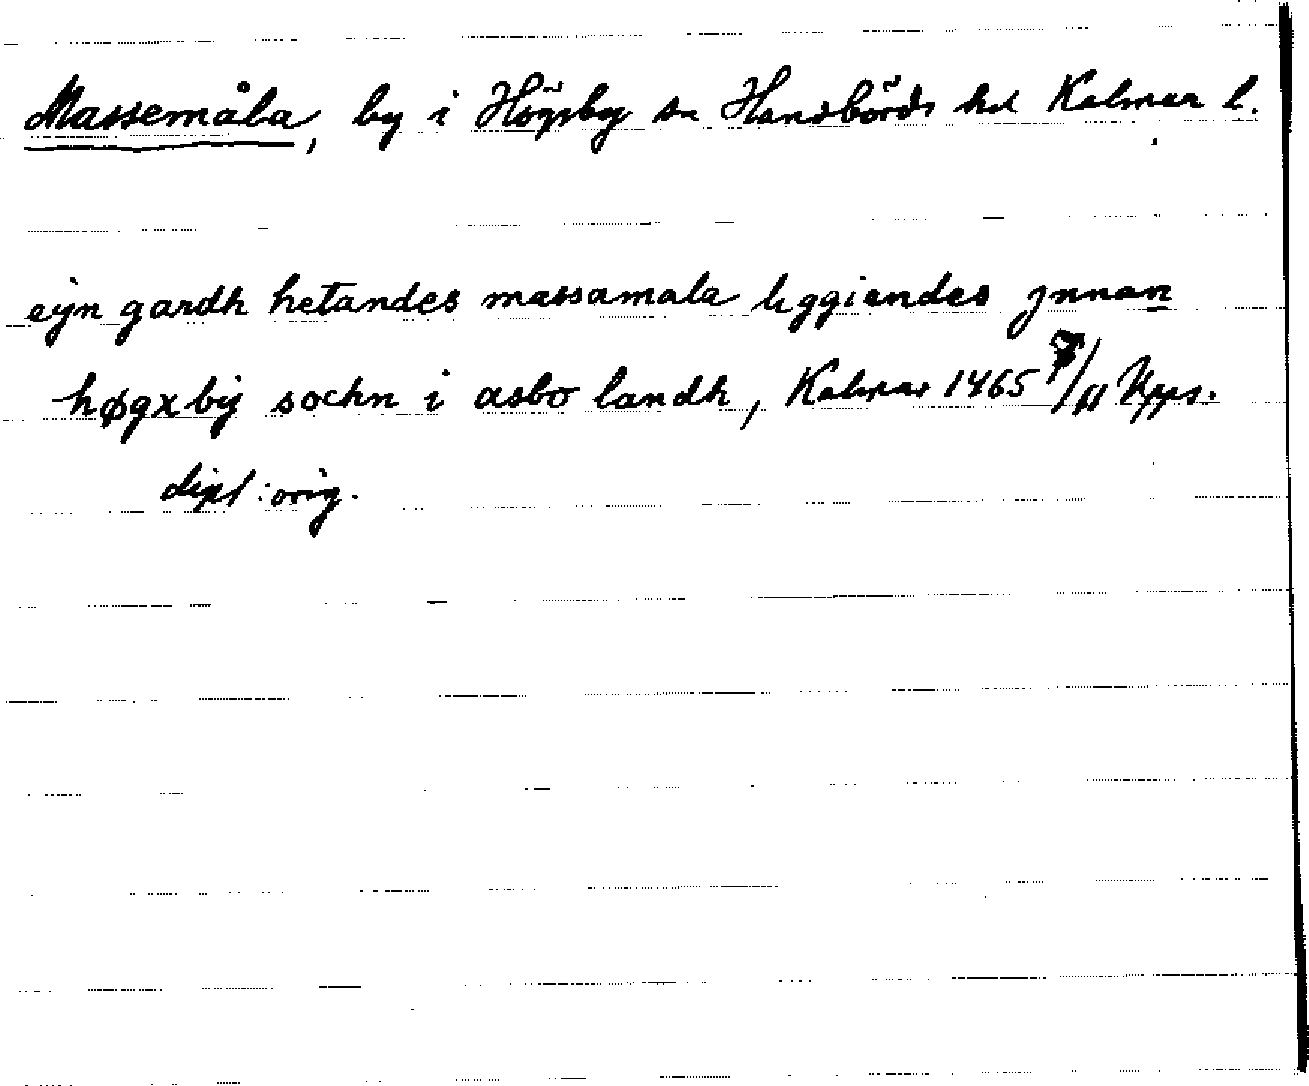 Massemåla, by i Högsby sn Handbörds hd Kalmar l.
eÿn gardh hetandes massamala liggiandes jnnan
høgxbÿ sochn i asbo landh, Kalmar 1465 7/11 Upps.
dipl: orig.